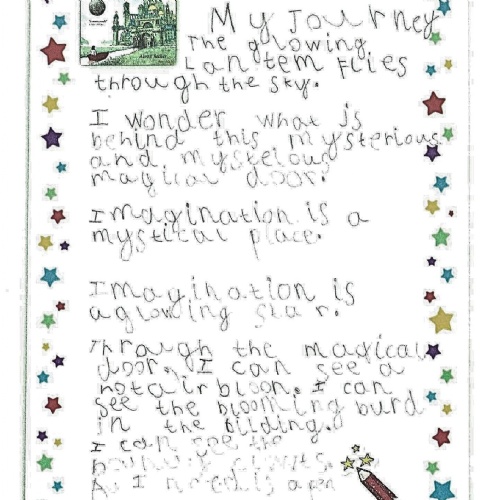 My Journey
The glowing
Lantern Flies
through the sky.
I wonder what is
behind this mysterious
and mysteious
magical door?
Imagination is a
mystical place.
Imagination is
a glowing star.
Through the magical
door, I can see a
hotair bloon. I can
see the blooming burd
in the bilding.
I can see the
I need is a pen